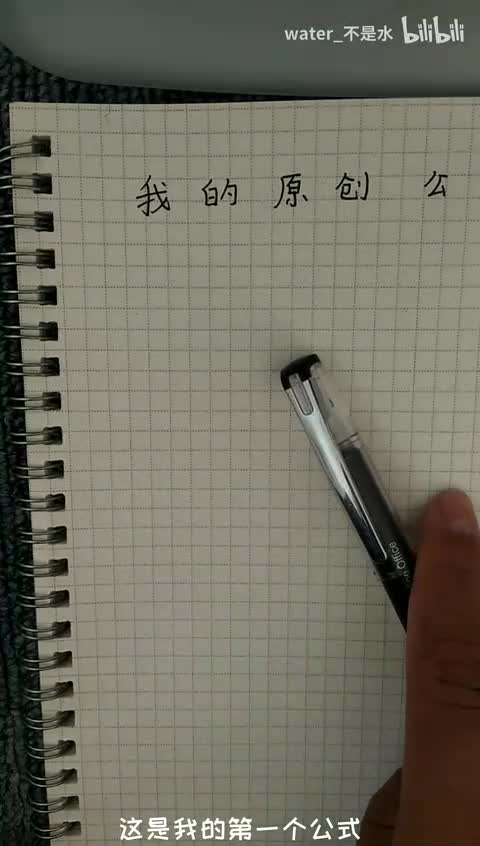 water_不是水 bilibili
我的原创公
en Office
这是我的第一个公式